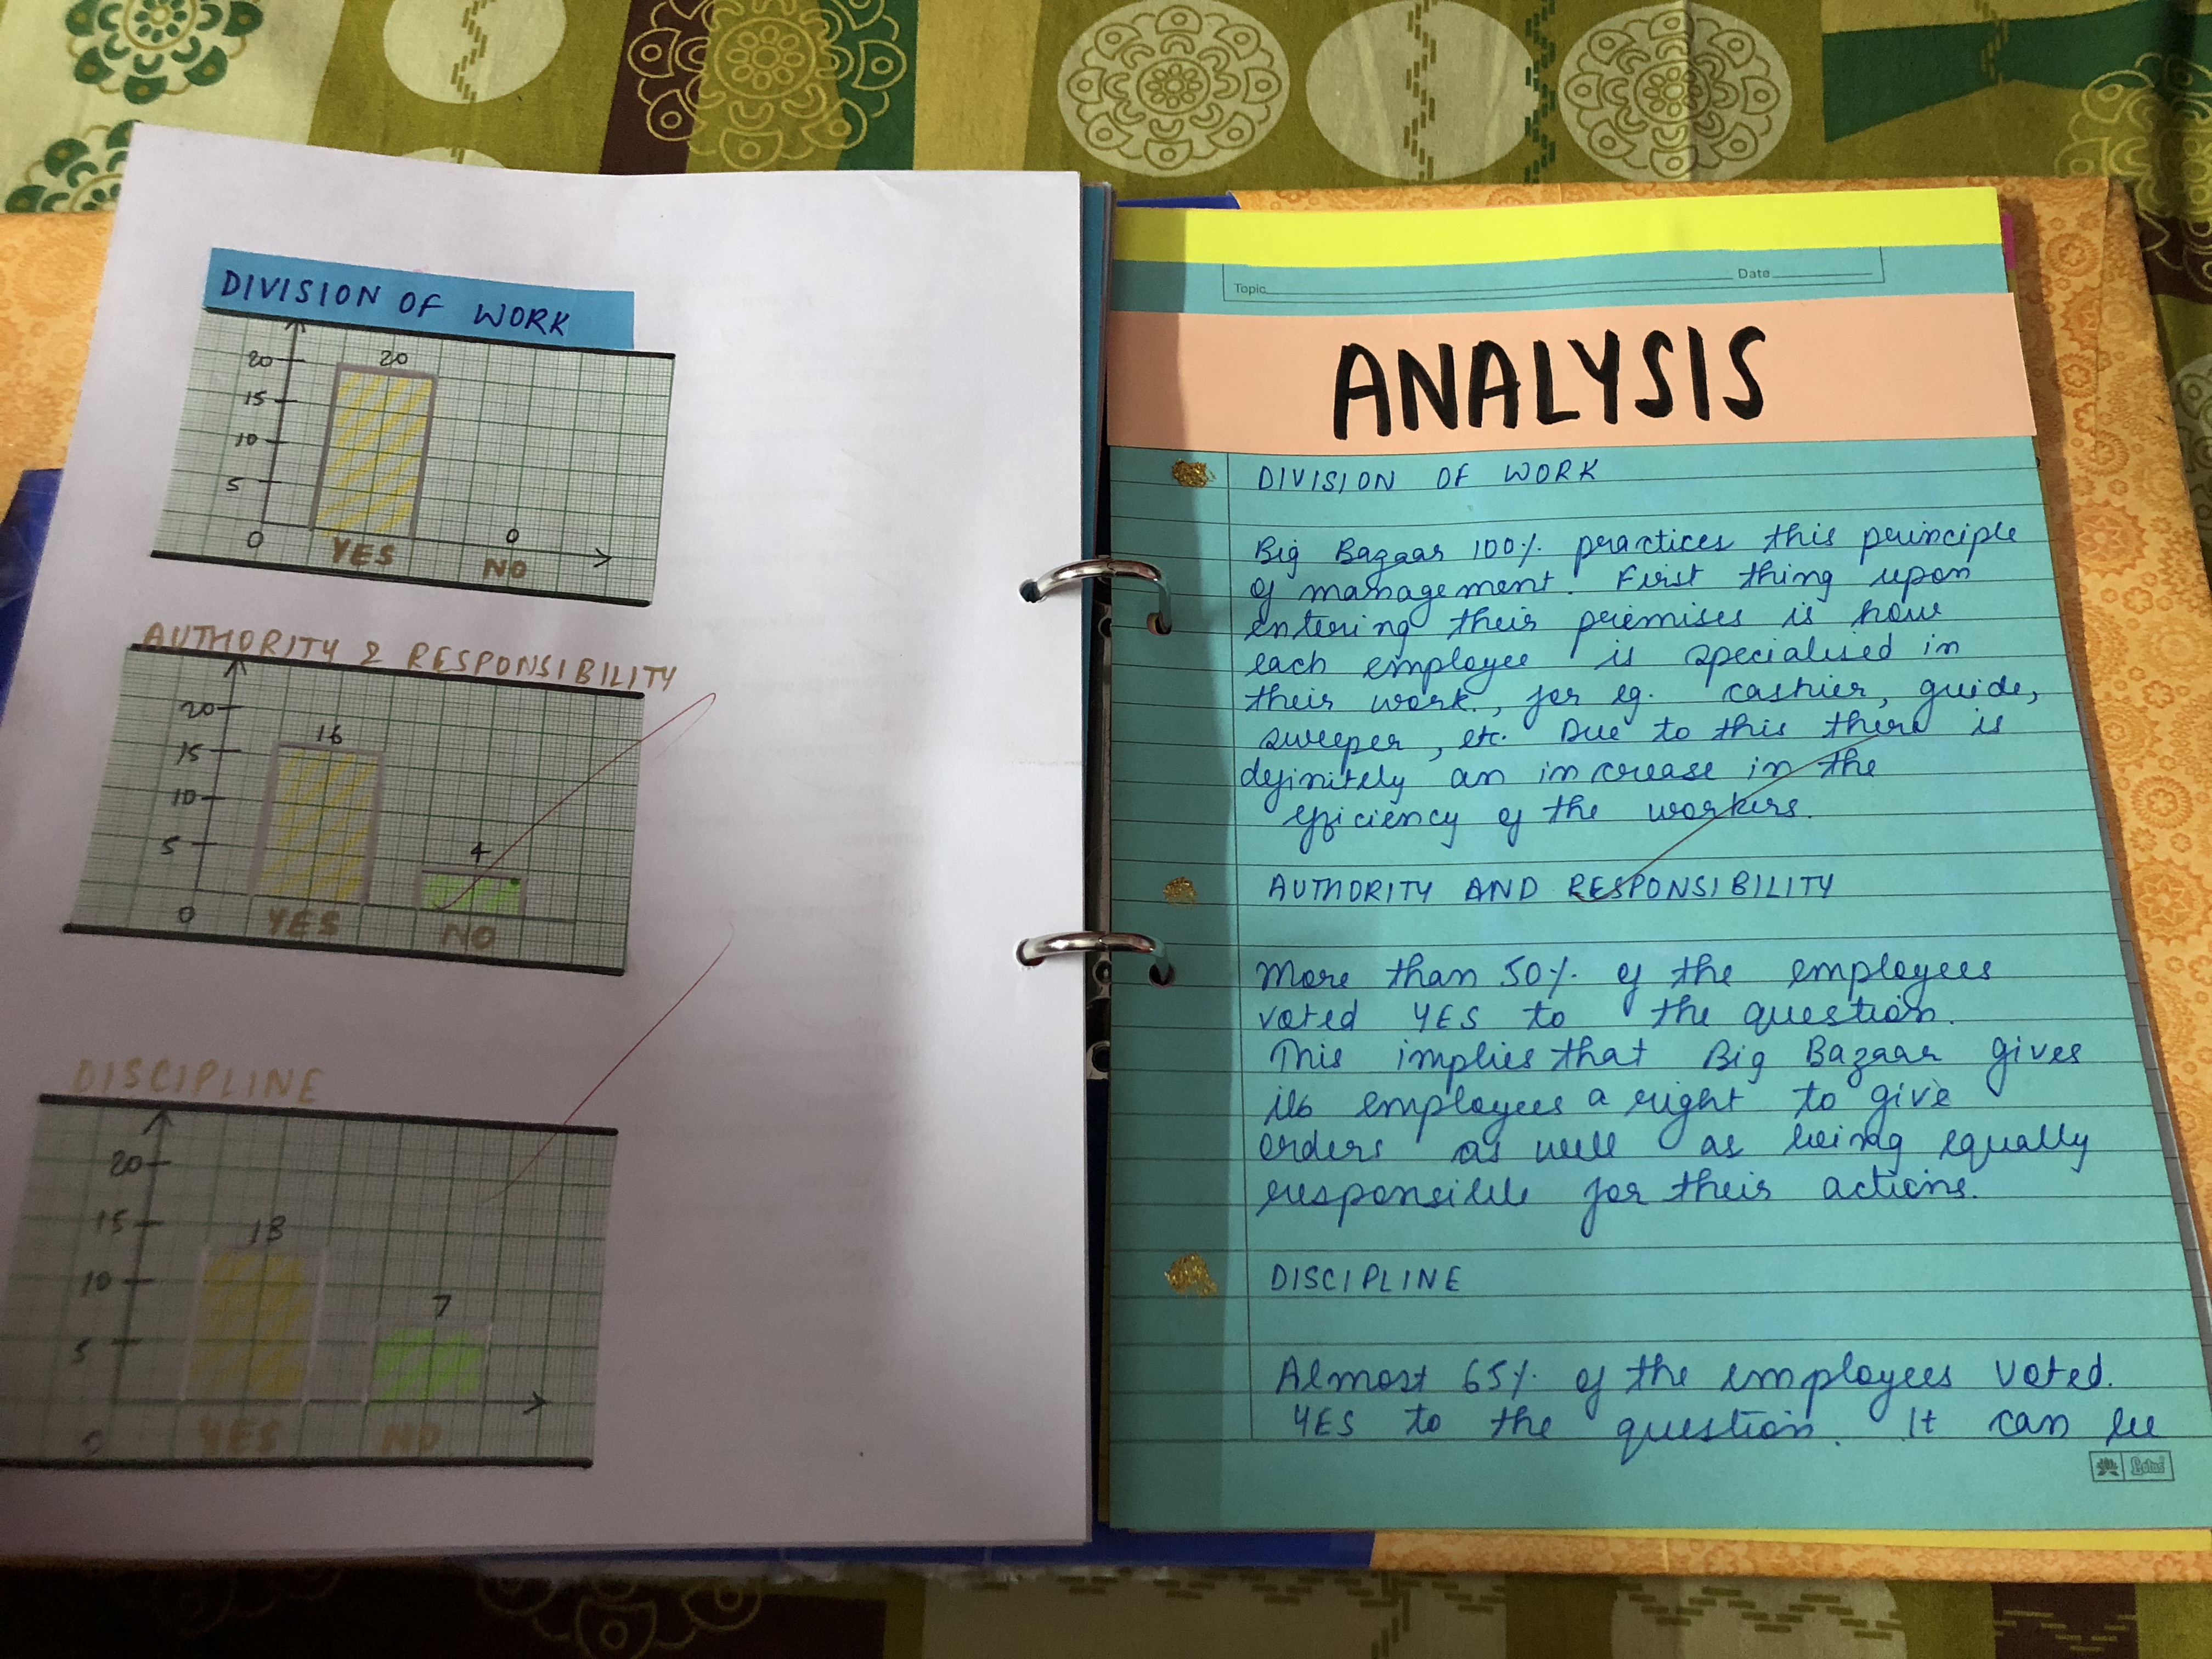 DIVISION OF WORK
20
20
15
10
5
0
0
YES
NO
AUTHORITY & RESPONSIBILITY
20
16
15
10
5
4
0
YES
NO
DISCIPLINE
20
15
13
10
7
5
0
YES
NO
Topic
Date
ANALYSIS
DIVISION OF WORK
Big Bazaar 100% practices this principle
of management. First thing upon
entering their premises is how
each employee is specialised in
their work, for eg. cashier, guide,
sweeper, etc. Due to this there is
definitely an increase in the
efficiency of the workers.
AUTHORITY AND RESPONSIBILITY
More than 50% of the employees
voted YES to the question.
This implies that Big Bazaar gives
its employees a right to give
orders as well as being equally
responsible for their actions.
DISCIPLINE
Almost 65% of the employees voted.
YES to the question. It can be
Lotus